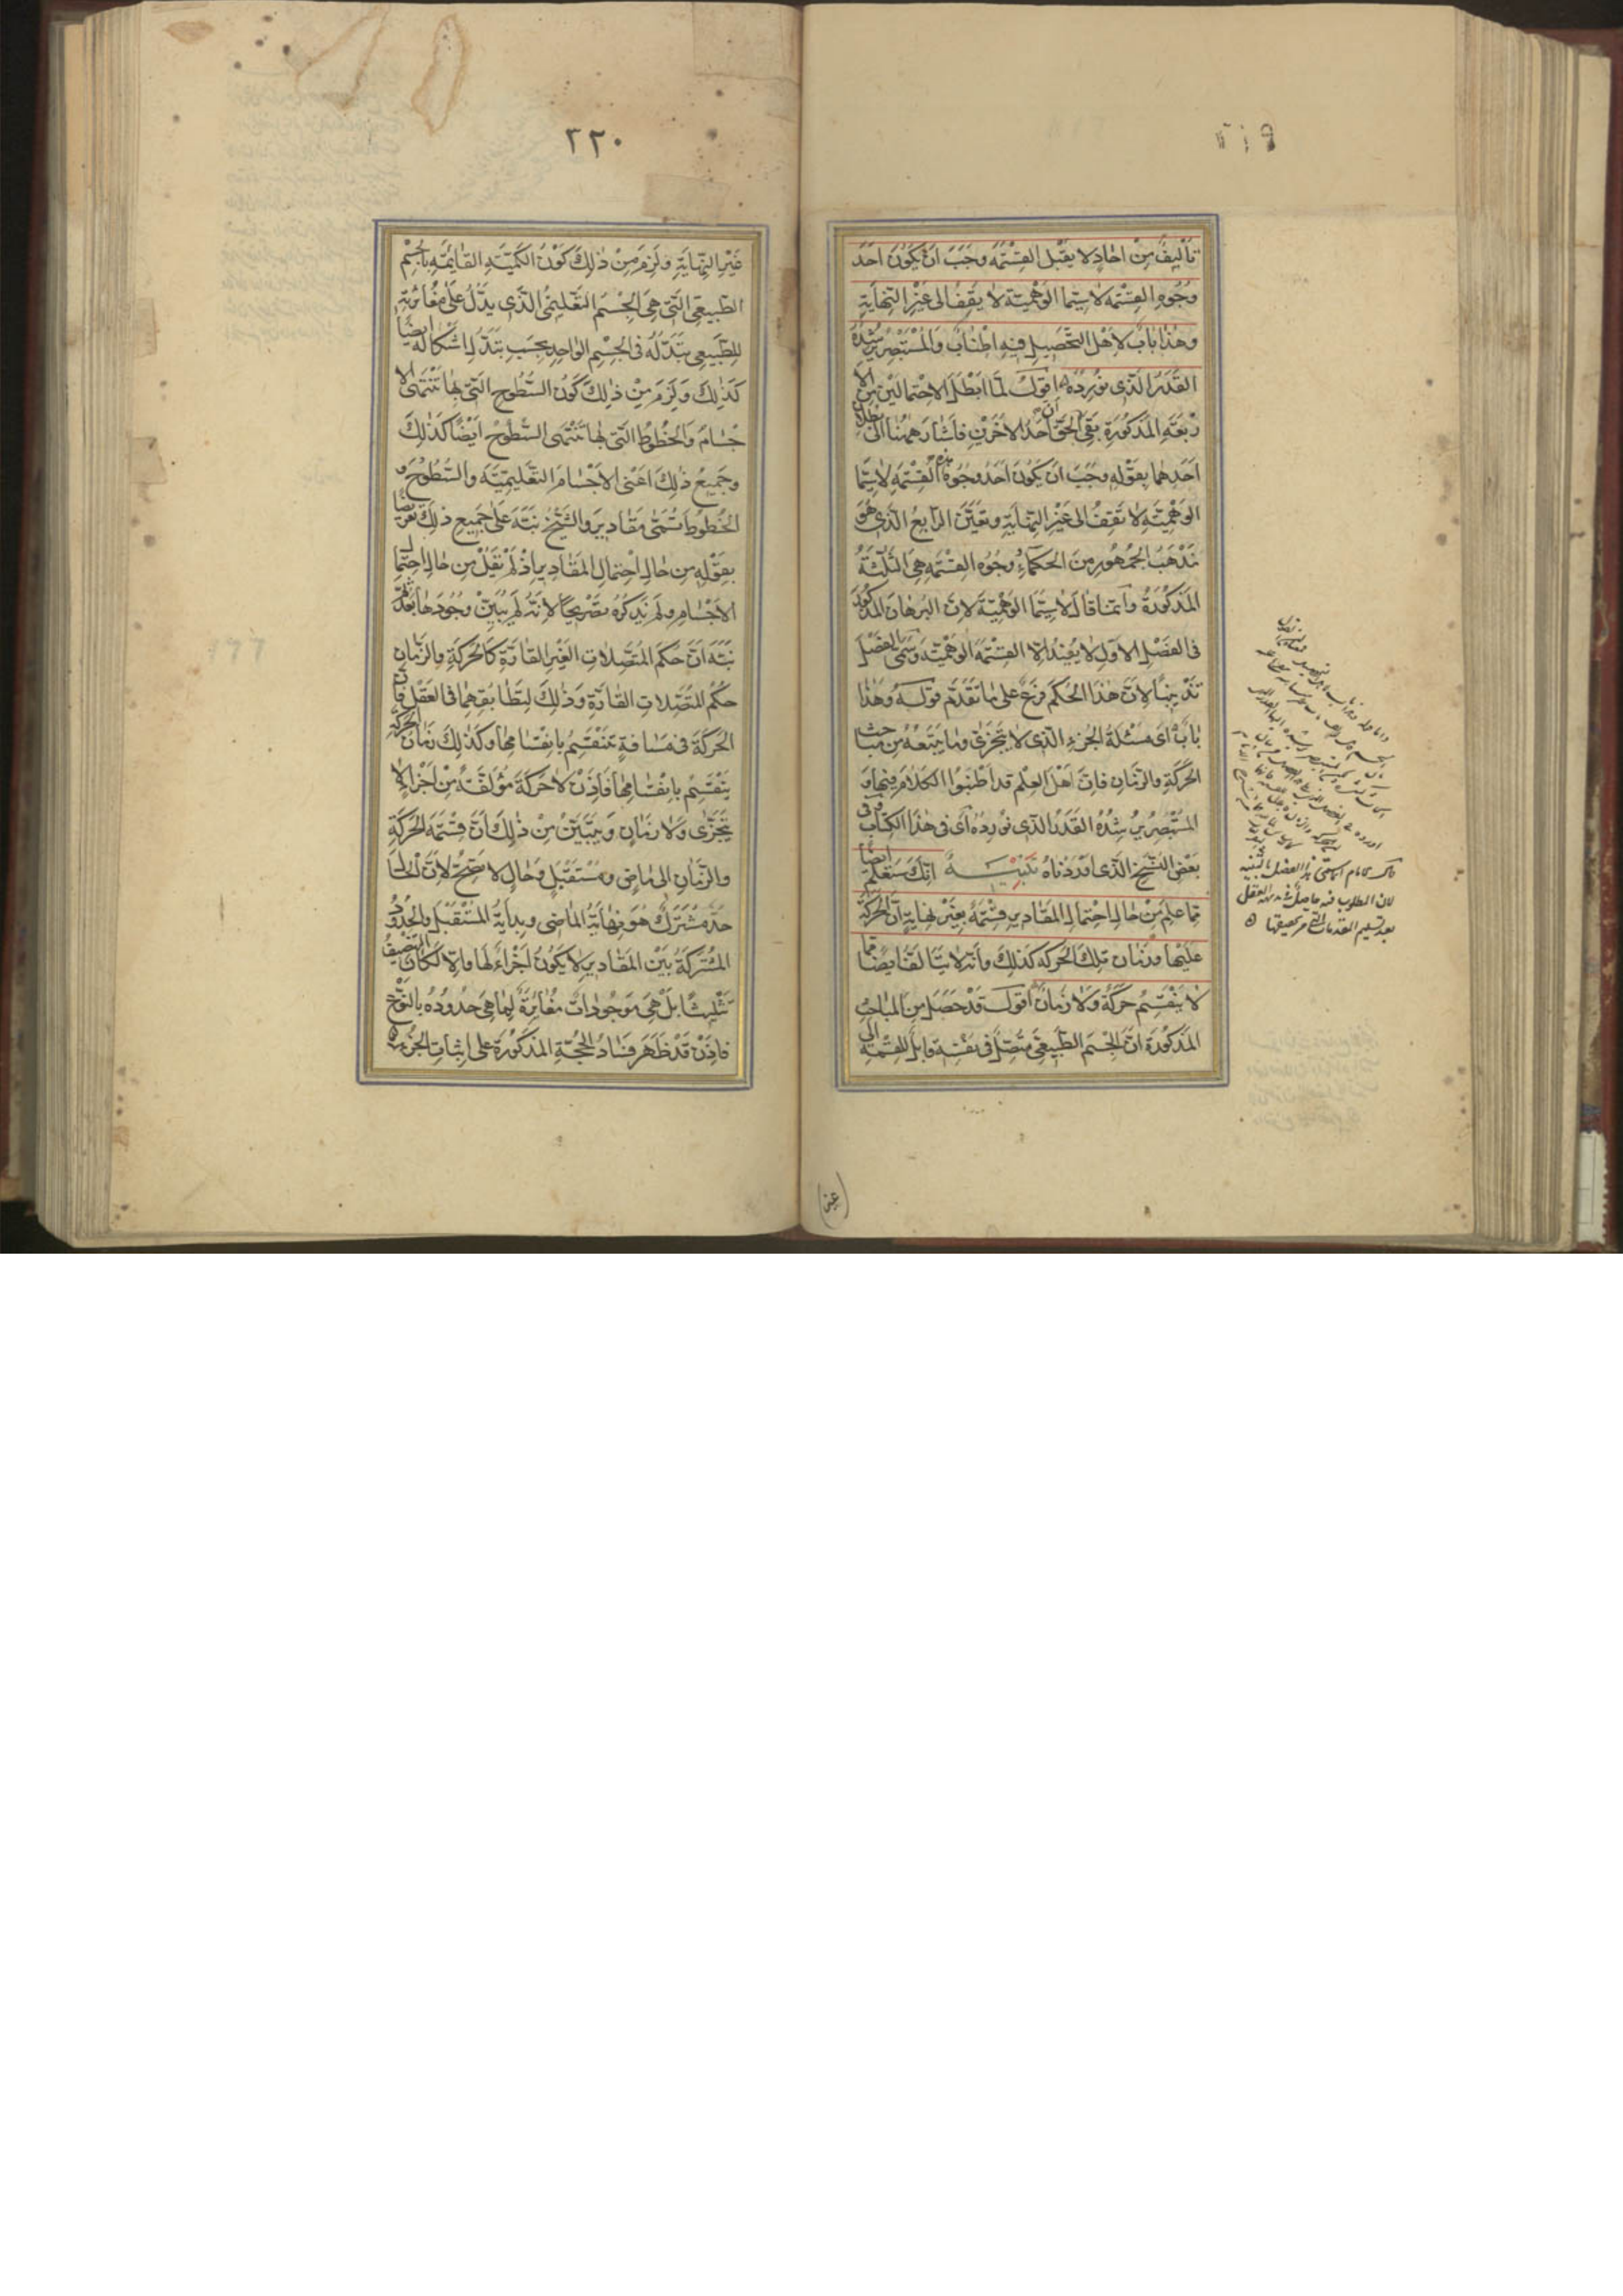 ٣١٩
تأليف من احاد لا يقبل القسمة وجب ان يكون احد
وجوه القسمة لا سيما الوهمية لا يقف الى غير النهاية
وهذا باب لاهل التحصيل فيه اطناب والمستبصر يرشده
القدر الذى نورده اقول لما ابطل الاحتمالين من الا
ربعة المذكورة بقى ان الحق احد الاخرين فاشار ههنا الى بطلان
احدهما بقوله وجب ان يكون احد وجوه هذه القسمة لا سيما
الوهمية لا تقف الى غير النهاية وتعين الرابع الذى هو
مذهب الجمهور من الحكماء وجوه القسمة هى الثلثة
المذكورة وانما قال لا سيما الوهمية لان البرهان المذكور
فى الفصل الاول لا يفيد الا القسمة الوهمية وسمى الفصل
تذنيبا لان هذا الحكم فرع على ما تقدم قوله وهذا
باب اى مسئلة الجزء الذى لا يتجزى وما يتبعه من مباحث
الحركة والزمان فان اهل العلم قد اطنبوا الكلام فيها و
المستبصر يرشده القدر الذى نورده اى فى هذا الكتاب وفى
بعض النسخ الذى اوردناه تنبيه انك ستعلم ايضا
مما علم من حال احتمال المقادير قسمة بغير نهاية ان الحركة
عليها وزمان تلك الحركة كذلك وانه لا يتالف ايضا مما
لا ينقسم حركة ولا زمان اقول قد حصل من المباحث
المذكورة ان الجسم الطبيعى متصل فى نفسه قابل للقسمة الى
قال الامام انما سمى هذا الفصل بالتنبيه
لان المطلوب فيه حاصل فى بديهة العقل
بعد تسليم المقدمات التى مر تحقيقها
٣٢٠
غير النهاية ولزم من ذلك كون الكمية القائمة بالجسم
الطبيعى التى هى الجسم التعليمى الذى يدل على مغايرته
للطبيعى تبدله فى الجسم الواحد بحسب تبدل اشكاله ايضا
كذلك ولزم من ذلك كون السطوح التى بها تنتهى الا
جسام والخطوط التى بها تنتهى السطوح ايضا كذلك
وجميع ذلك اعنى الاجسام التعليمية والسطوح و
الخطوط تسمى مقادير والشيخ نبه على جميع ذلك تعريضا
بقوله من حال احتمال المقادير اذ لم يقل من حال احتمال
الاجسام ولم يذكره تصريحا لانه لم يبين وجودها بعد ثم
نبه ان حكم المتصلات الغير القارة كالحركة والزمان
حكم المتصلات القارة وذلك لتطابقهما فى العقل فان
الحركة فى مسافة تنقسم بانقسامها وكذلك زمان الحركة
ينقسم بانقسامها فاذن لا حركة مؤلفة من اجزاء لا
يتجزى ولا زمان ويتبين من ذلك ان قسمة الحركة
والزمان الى ماض ومستقبل وحال لا تصح لان الحال
حد مشترك هو نهاية الماضى وبداية المستقبل والحدود
المشتركة بين المقادير لا يكون اجزاء لها والا لكان التنصيف
تثليثا بل هى موجودات مغايرة لما هى حدوده بالنوع
فاذن قد ظهر فساد الحجة المذكورة على اثبات الجزء